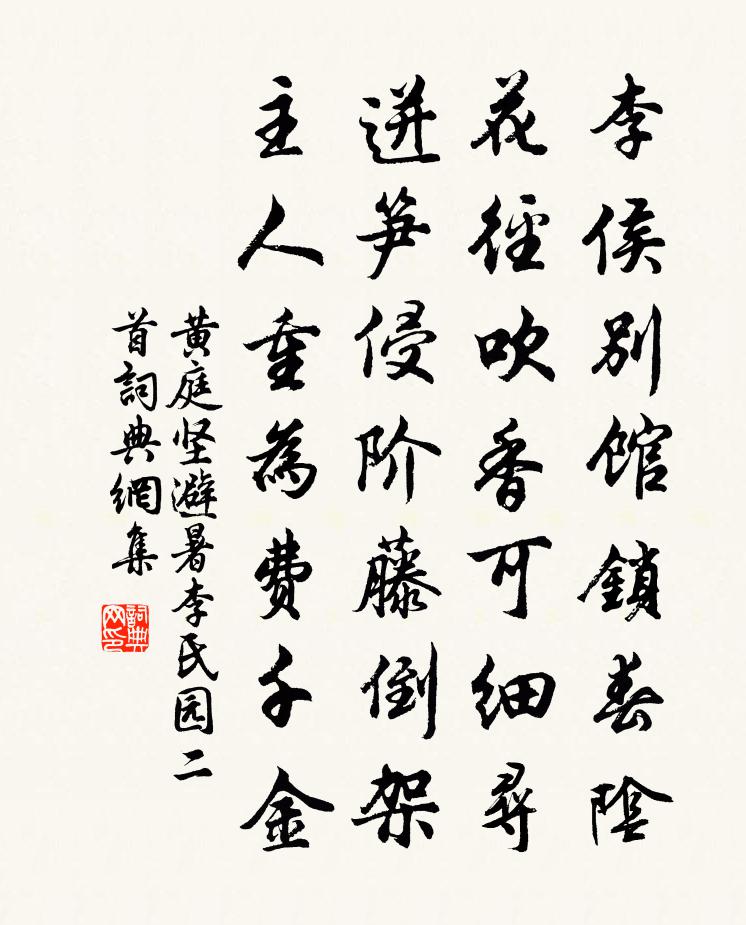 李侯别館鎖春陰
花徑吹香可细尋
迸笋侵阶藤倒架
主人重為费千金
黄庭坚避暑李氏园二
首詞典網集
詞典网印